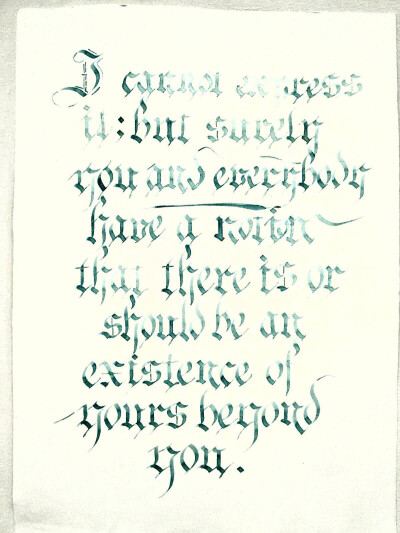 I cannot express
it: but surely
you and everybody
have a notion
that there is or
should be an
existence of
yours beyond
you.